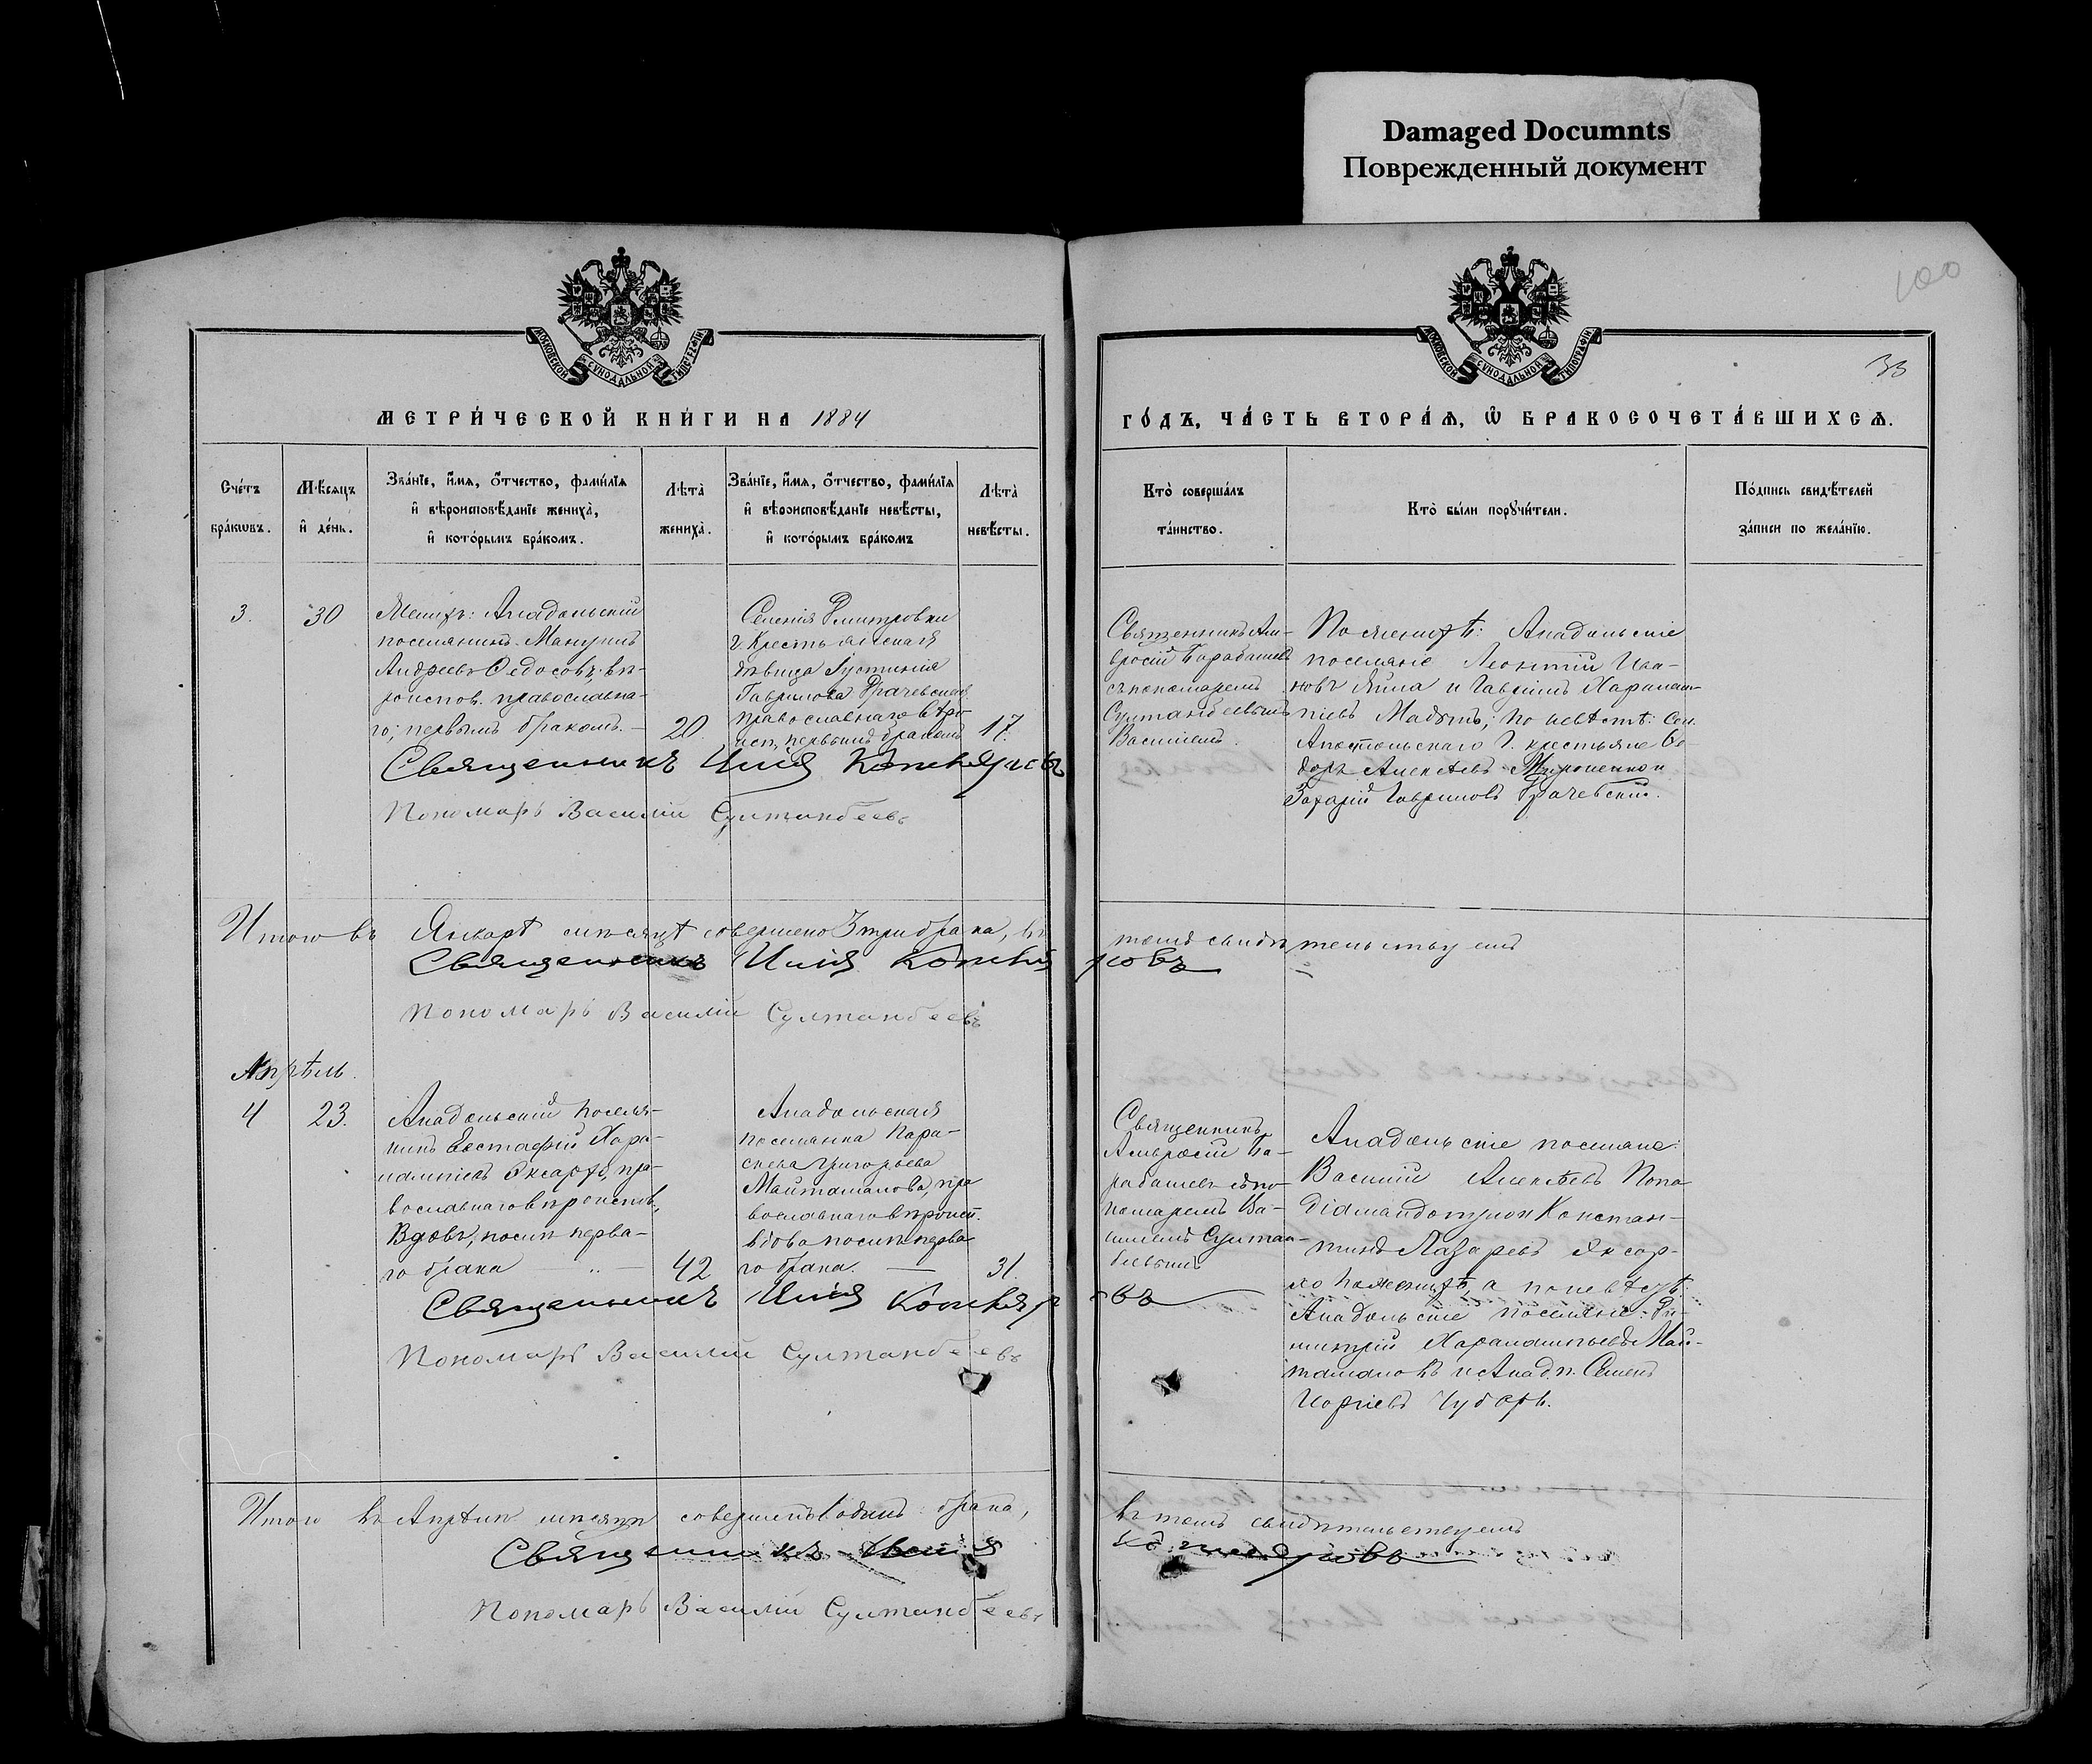 Damaged Documnts
Поврежденный документ
100
МОСКОВСКОЙ СУНОДАЛЬНОЙ ТИПОГРАФIИ
МОСКОВСКОЙ СУНОДАЛЬНОЙ ТИПОГРАФIИ
33
МЕТРИ́ЧЕСКОЙ КНИ́ГИ НА 1884
ГО́ДЪ, ЧА́СТЬ ВТОРА́Я, Ѽ БРАКОСОЧЕТА́ВШИХСЯ.
Сче́тъ
бра́кωвъ.
Мѣ́сяцъ
и҆ де́нь.
Зва́нїе, и҆́мѧ, ѻ҆́тчество, фами́лїѧ
и҆ вѣроисповѣ́данїе жениха̀,
и҆ кото́рымъ бра́комъ.
Лѣта̀
жениха̀.
Зва́нїе, и҆́мѧ, ѻ҆́тчество, фами́лїѧ
и҆ вѣроисповѣ́данїе невѣ́сты,
и҆ кото́рымъ бра́комъ
Лѣта̀
невѣ́сты.
Кто̀ соверша́лъ
та́инство.
Кто̀ бы́ли порꙋчи́тели.
По́дпись свидѣ́телей
за́писи по жела́нїю.
3.
30
Жених: Анадольскiй
поселянинъ Мануилъ
Андреевъ Федосовъ, вѣ-
роиспов. православна-
го; первымъ бракомъ. —
20.
Селенiя Дмитровки
г. Крестьянская
дѣвица Іустинiя
Гаврилова Грачевская
православнаго вѣро-
исп, первымъ бракомъ
17.
Священникъ Ам-
вросiй Барабашевъ
съ пономаремъ
Султанбеевымъ
Василiемъ.
По женихѣ: Анадольскiе
поселяне Леонтiй Ива-
новъ Яйла и Гаврiилъ Харалам-
пiевъ по невѣстѣ: Сел.
Апостольскаго г. крестьяне Ѳе-
доръ Алексѣевъ Мироненко и
Захарiй Гавриловъ Грачевскiй.
Священникъ Илiя
Пономарь Василiй Султанбеевъ
Итого въ Январѣ мѣсяцѣ совершено 3 три брака, въ
томъ свидѣтельствуемъ
Священникъ Илiя
Пономарь Василiй Султанбеевъ
Апрѣль.
4
23.
Анадольскiй поселя-
нинъ Евстафiй Хара-
лампiевъ пра-
вославнаго вѣроиспов,
Вдовъ, послѣ перва-
го брака —
42
Анадольская
поселянка Пара-
скева Григорьева
Майтамалова, пра
вославнаго вѣроисп.
вдова послѣ перва
го брака. —
31.
Священникъ
Амвросiй Ба-
рабашевъ съ по-
номаремъ Ва-
силiемъ Султан-
беевымъ
Анадольскiе поселяне:
Василiй Алексѣевъ Попа
Дiамандотрiон Констан-
тинъ Лазаревъ
по женихѣ, а по невѣстѣ:
Анадольскiе поселяне: Ди-
митрiй Харалампьевъ Май-
тамаловъ и Анад. п. Семенъ
Чубарь.
Священникъ Илiя
Пономарь Василiй Султанбеевъ
Итого въ Апрѣлѣ мѣсяцѣ совершенъ 1 одинъ брака,
въ томъ свидѣтельствуемъ
Священникъ Илiя
Пономарь Василiй Султанбеевъ